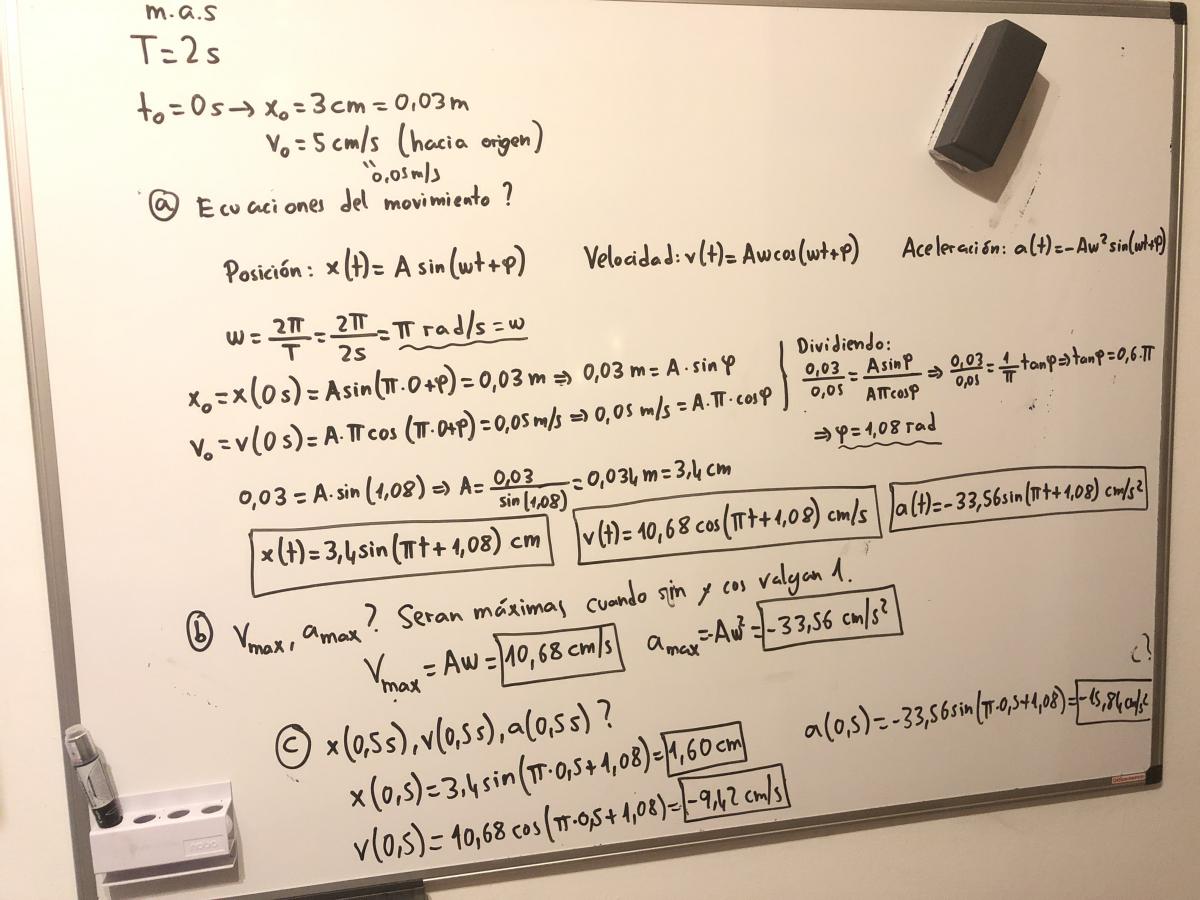 m.a.s
T=2s
t₀=0s→ x₀=3cm=0,03m
v₀=5cm/s (hacia origen)
"0,05m/s
ⓐ Ecuaciones del movimiento?
Posición: x(t)=A sin(wt+φ) Velocidad: v(t)=Aw cos(wt+φ) Aceleración: a(t)=-Aw² sin(wt+φ)
w=2π/T=2π/2s=π rad/s=w
x₀=x(0s)=A sin(π·0+φ)=0,03m⇒ 0,03m=A·sinφ
v₀=v(0s)=A·π cos(π·0+φ)=0,05m/s⇒0,05 m/s=A·π·cosφ
Dividiendo:
0,03/0,05=A sinφ/Aπcosφ ⇒ 0,03/0,05=1/π tanφ⇒tanφ=0,6·π
⇒φ=1,08 rad
0,03=A·sin(1,08)⇒ A=0,03/sin(1,08)=0,034m=3,4cm
x(t)=3,4sin(πt+1,08) cm v(t)=10,68 cos(πt+1,08) cm/s a(t)=-33,56sin(πt+1,08) cm/s²
ⓑ Vmax, amax? Seran máximas cuando sin y cos valgan 1.
Vmax=Aw=10,68 cm/s amax=-Aw²=-33,56 cm/s²
¿?
ⓒ x(0,5s), v(0,5s), a(0,5s)?
x(0,5)=3,4sin(π·0,5+1,08)=1,60cm
v(0,5)=10,68 cos(π·0,5+1,08)=-9,42 cm/s
a(0,5)=-33,56sin(π·0,5+1,08)=-15,84cm/s²